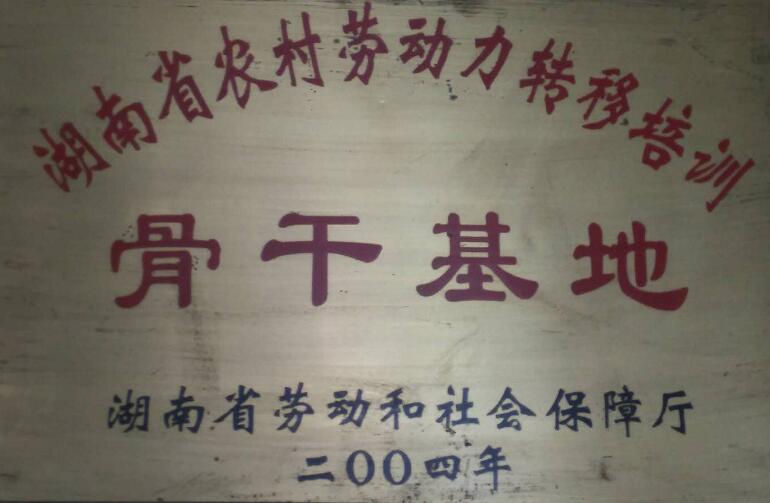 湖南省农村劳动力转移培训
骨干基地
湖南省劳动和社会保障厅
二〇〇四年